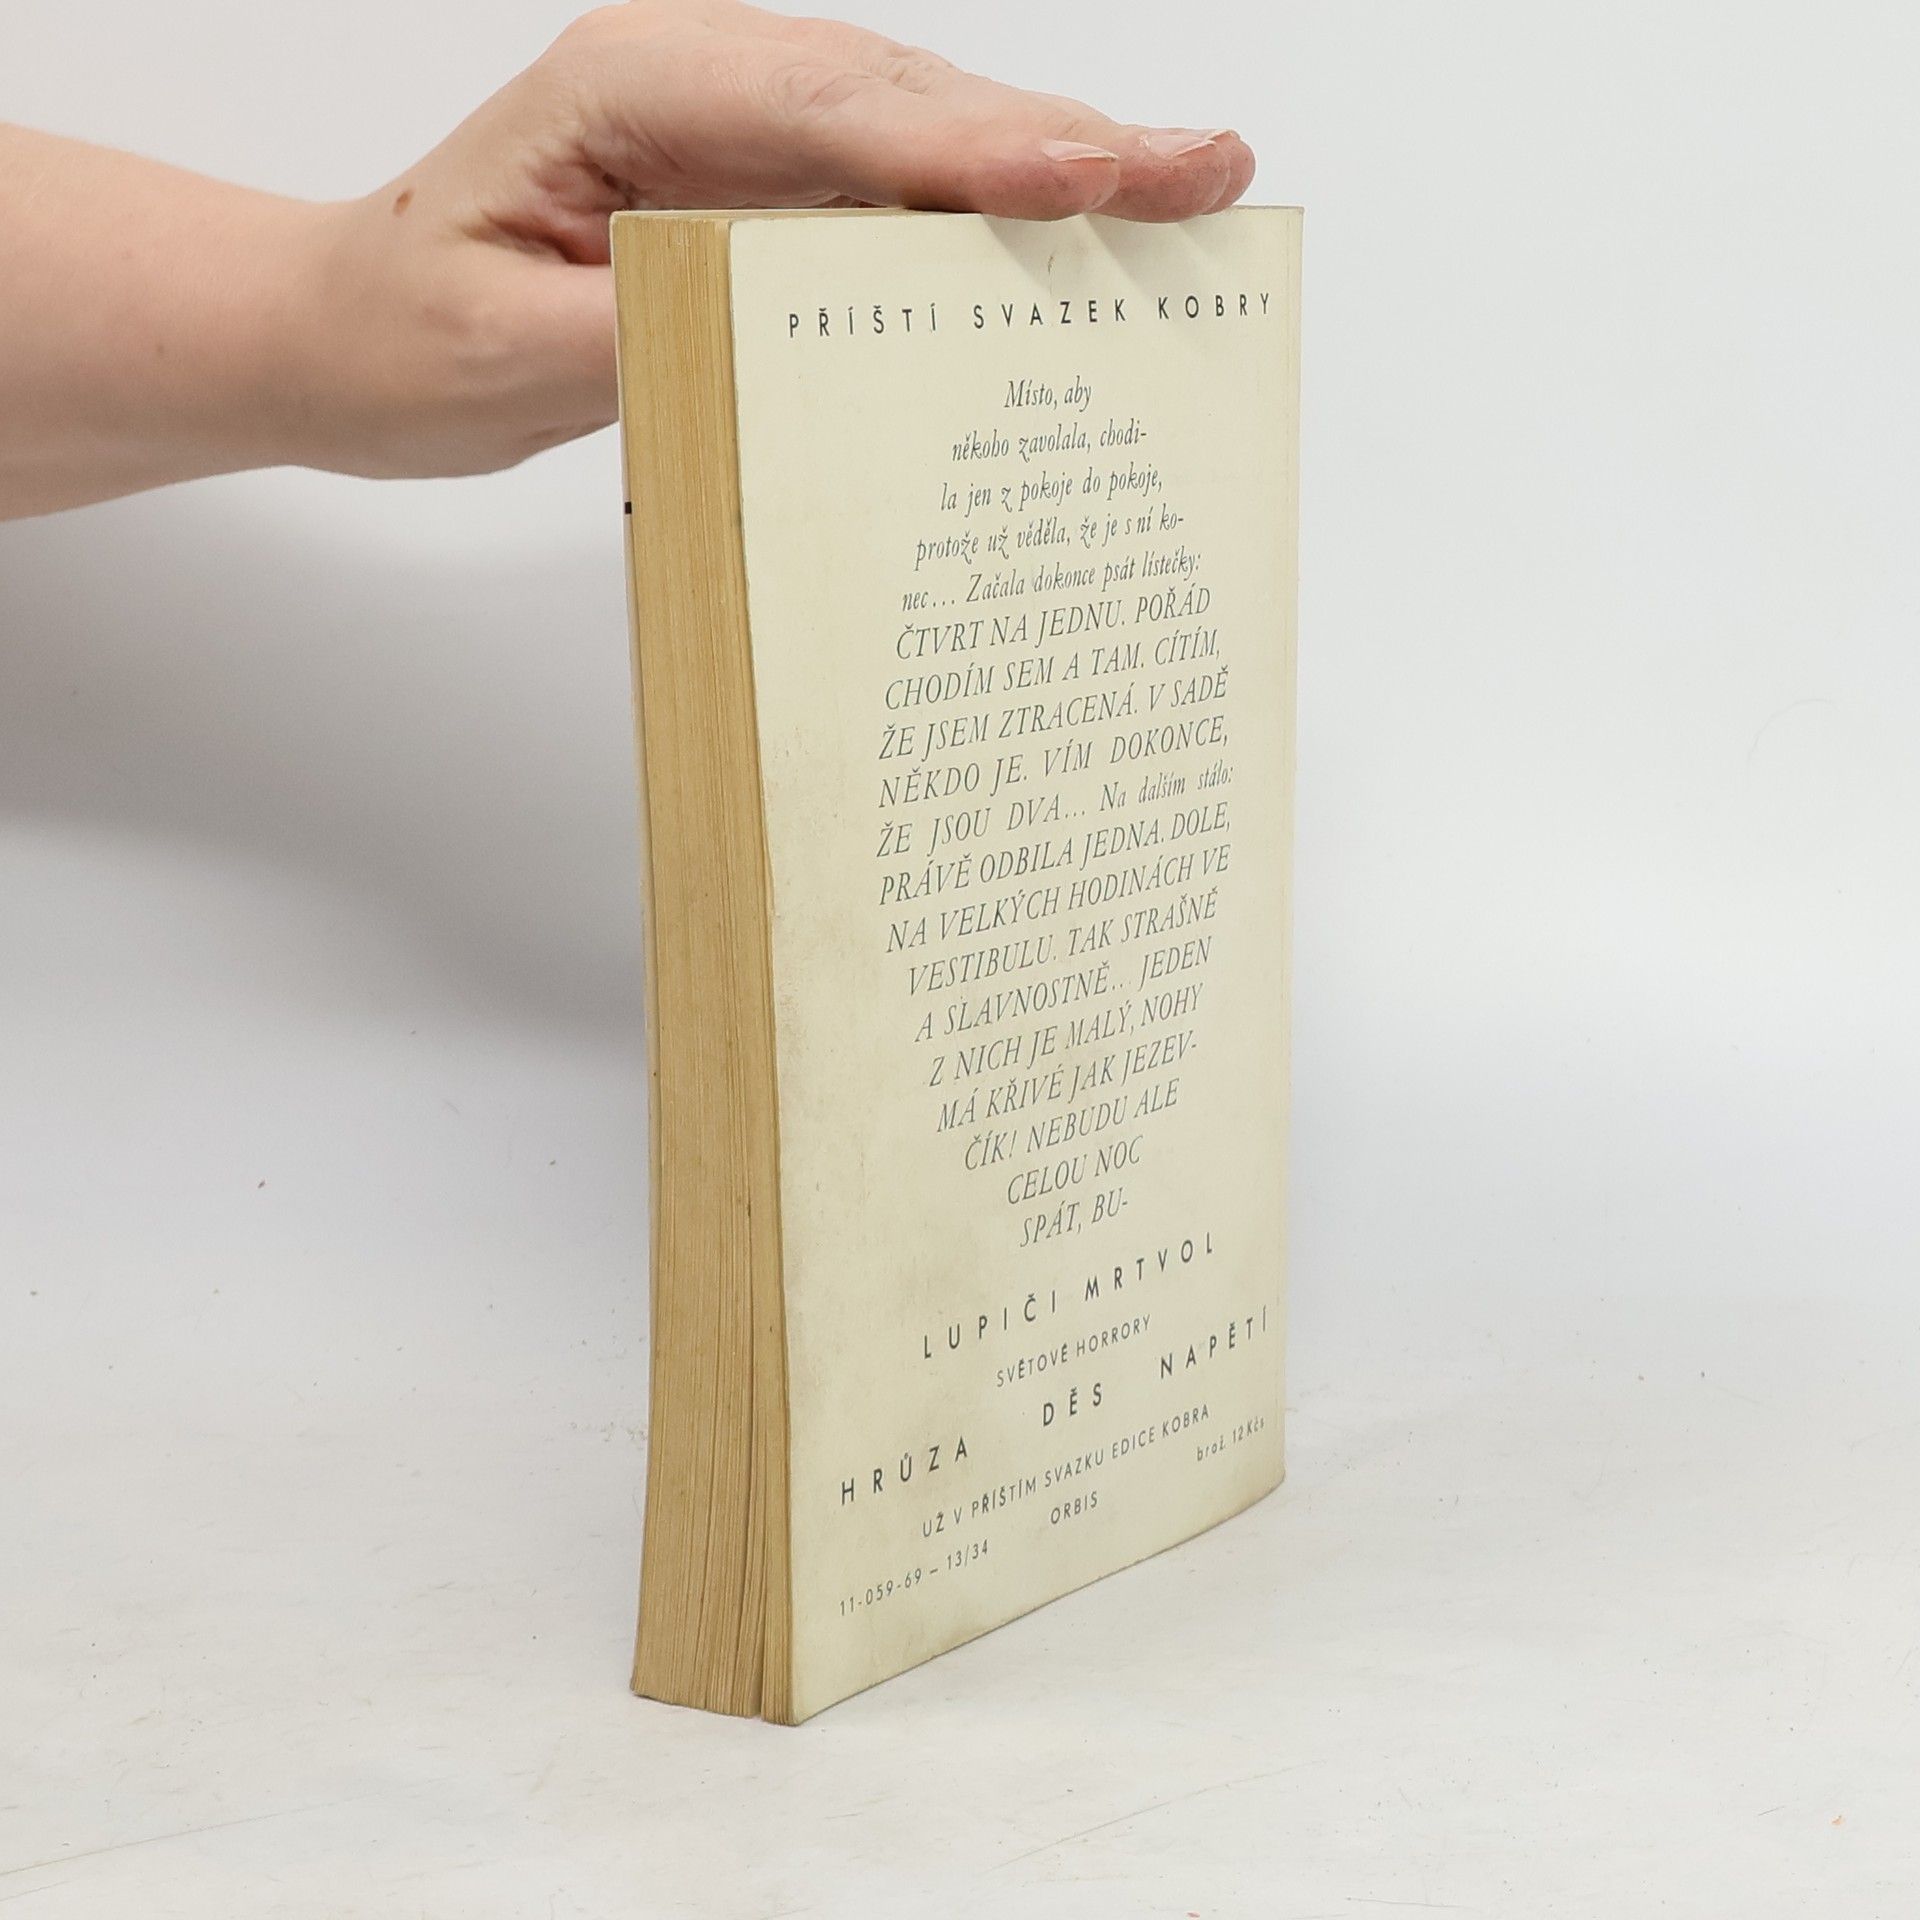 PŘÍŠTÍ SVAZEK KOBRY
Místo, aby
někoho zavolala, chodi-
la jen z pokoje do pokoje,
protože už věděla, že je s ní ko-
nec... Začala dokonce psát lístečky:
ČTVRT NA JEDNU. POŘÁD
CHODÍM SEM A TAM. CÍTÍM,
ŽE JSEM ZTRACENÁ. V SADĚ
NĚKDO JE. VÍM DOKONCE,
ŽE JSOU DVA... Na dalším stálo:
PRÁVĚ ODBILA JEDNA. DOLE,
NA VELKÝCH HODINÁCH VE
VESTIBULU. TAK STRAŠNĚ
A SLAVNOSTNĚ... JEDEN
Z NICH JE MALÝ, NOHY
MÁ KŘIVÉ JAK JEZEV-
ČÍK! NEBUDU ALE
CELOU NOC
SPÁT, BU-
LUPIČI MRTVOL
SVĚTOVÉ HORRORY
HRŮZA DĚS NAPĚTÍ
UŽ V PŘÍŠTÍM SVAZKU EDICE KOBRA
brož. 12 Kčs
ORBIS
11-059-69 — 13/34